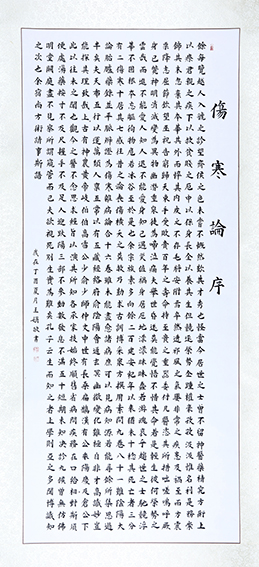 傷寒論序
餘每覽越人入虢之診望齊侯之色未嘗不慨然歎其才秀也怪當今居世之士曾不留神醫藥精究方術上
以療君親之疾下以救貧賤之厄中以保身長全以養其生但競逐榮勢企踵權豪孜孜汲汲惟名利是務崇
飾其末忽棄其本華其外而悴其內皮之不存毛將安附焉卒然遭邪風之氣嬰非常之疾患及禍至而方震
栗降志屈節欽望巫祝告窮歸天束手受敗賚百年之壽命持至貴之重器委付凡醫恣其所措咄嗟嗚呼厥
身已斃神明消滅變為異物幽潛重泉徒為啼泣痛夫舉世昏迷莫能覺悟不惜其命若是輕生彼何榮勢之
雲哉而進不能愛人知人退不能愛身知己遇災值禍身居厄地蒙蒙昧昧蠢若遊魂哀乎趨世之士馳競浮
華不固根本忘軀徇物危若冰谷至於是也余宗族素多向餘二百建安紀年以來猶未十稔其死亡者三分
有二傷寒十居其七感往昔之淪喪傷橫夭之莫救乃勤求古訓博采眾方撰用素問九卷八十一難陰陽大
論胎臚藥錄並平脈辨證為傷寒雜病論合十六卷雖未能盡愈諸病庶可以見病知源若能尋餘所集思過
半矣夫天布五行以運萬類人稟五常以有五臟經絡府俞陰陽會通玄冥幽微變化難極自非才高識妙豈
能探其理致哉上古有神農黃帝岐伯伯高雷公少俞少師仲文中世有長桑扁鵲漢有公乘陽慶及倉公下
此以往未之聞也觀今之醫不念思求經旨以演其所知各承家技終始順舊省疾問病務在口給相對斯須
便處湯藥按寸不及尺握手不及足人迎趺陽三部不參動數發息不滿五十短期未知決診九候曾無仿佛
明堂闕庭盡不見察所謂窺管而已夫欲視死別生實為難矣孔子云生而知之者上學則亞之多聞博識知
之次也余宿尚方術請事斯語
歲在丁酉夏月王敬書